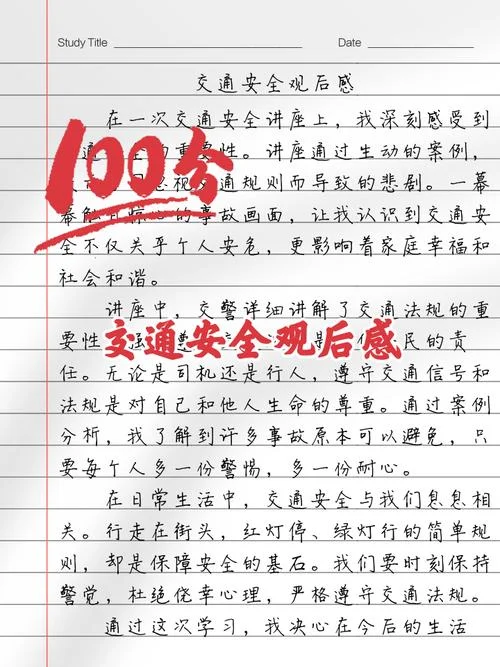 Study Title Date
交通安全观后感
在一次交通安全讲座上，我深刻感受到
100分
通全的重要性。讲座通过生动的案例，
忽视交通规则而导致的悲剧。一幕
幕触目惊心的事故画面，让我认识到交通安
全不仅关乎个人安危，更影响着家庭幸福和
社会和谐。
讲座中，交警详细讲解了交通法规的重
要性，强遵是民的责
交通安全观后感
任。无论是司机还是行人，遵守交通信号和
法规是对自己和他人生命的尊重。通过案例
分析，我了解到许多事故原本可以避免，只
要每个人多一份警惕，多一份耐心。
在日常生活中，交通安全与我们息息相
关。行走在街头，红灯停、绿灯行的简单规
则，却是保障安全的基石。我们要时刻保持
警觉，杜绝侥幸心理，严格遵守交通法规。
通过这次学习，我决心在今后的生活